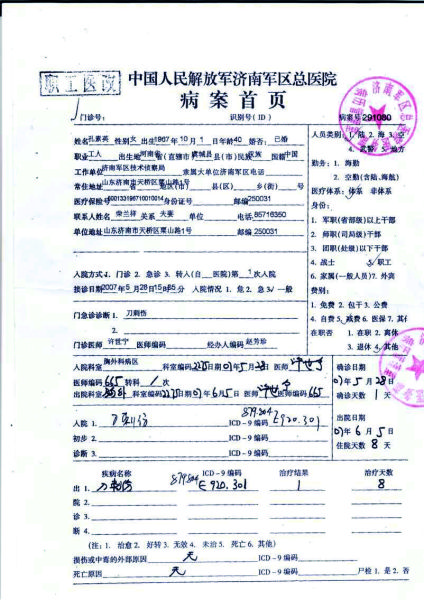 职工医改
中国人民解放军济南军区总医院
病案首页
门诊号: 识别号(ID) 病案号291080
姓名孔素英 性别女 出生1967年10月1日年龄40 婚否: 已婚
职业工人 出生地河南省(直辖市)虞城县(市)民族汉族 国籍中国
工作单位济南军区技术侦察局 隶属大单位济南军区电话
常住地址山东济南市天桥区粟山路1号 县(区) 乡(街) 号
医疗保险号 身份证号 邮编250031
联系人姓名荣兰祥 关系夫妻 单位 电话85716350
单位地址山东济南市天桥区粟山路1号 邮编250031
人员类别: 1. 陆 2. 海 3. 空
4. 武警 5. 地方
勤务: 1. 海勤
2. 空勤(含陆、海航)
医疗体系: 体系 非体系
身份:
1. 军职(省部级)以上干部
2. 师职(司局级)干部
3. 团职(处级)以下干部
4. 战士 5. 职工
6. 家属(一般人员) 7. 外宾
费别:
1. 免费 2. 包干 3. 公费
4. 自费 5. 减费 6. 医保 7. 其他
在职否 1. 在职 2. 离休
3. 退休 4. 其他
入院方式 1. 门诊 2. 急诊 3. 转入(自 医院)第1次入院
接诊日期2007年5月28日15时55分 入院情况 1. 危 2. 急 3. 一般
门急诊诊断 1. 刀刺伤
2.
门诊医师 许世宁 医师编码 经办人编码 赵芳珍
入院科室 胸外科病区 科室编码 日期07年5月28日 医师
医师编码665 转科1次
出院科室 科室编码 日期07年6月5日 医师 医师编码665
确诊日期
07年5月28日
确诊天数 1 天
出院日期
07年6月5日
住院天数 8 天
入院 1. 刀刺伤 ICD-9编码 879.804 E920.301
初步 2. ICD-9编码
诊断 3. ICD-9编码
疾病名称 ICD-9编码 治疗结果 治疗天数
出 1. 刀刺伤 879.804 E920.301 1 8
院 2.
诊 3.
断 4.
(注: 1. 治愈 2. 好转 3. 无效 4. 未治 5. 死亡 6. 其他)
损伤或中毒的外部原因 无 ICD-9编码
死亡原因 无 ICD-9编码 尸检 1. 是 2. 否